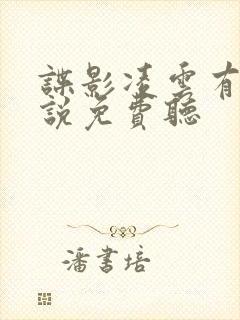 諜影凌雲有
說免費聽
潘書培